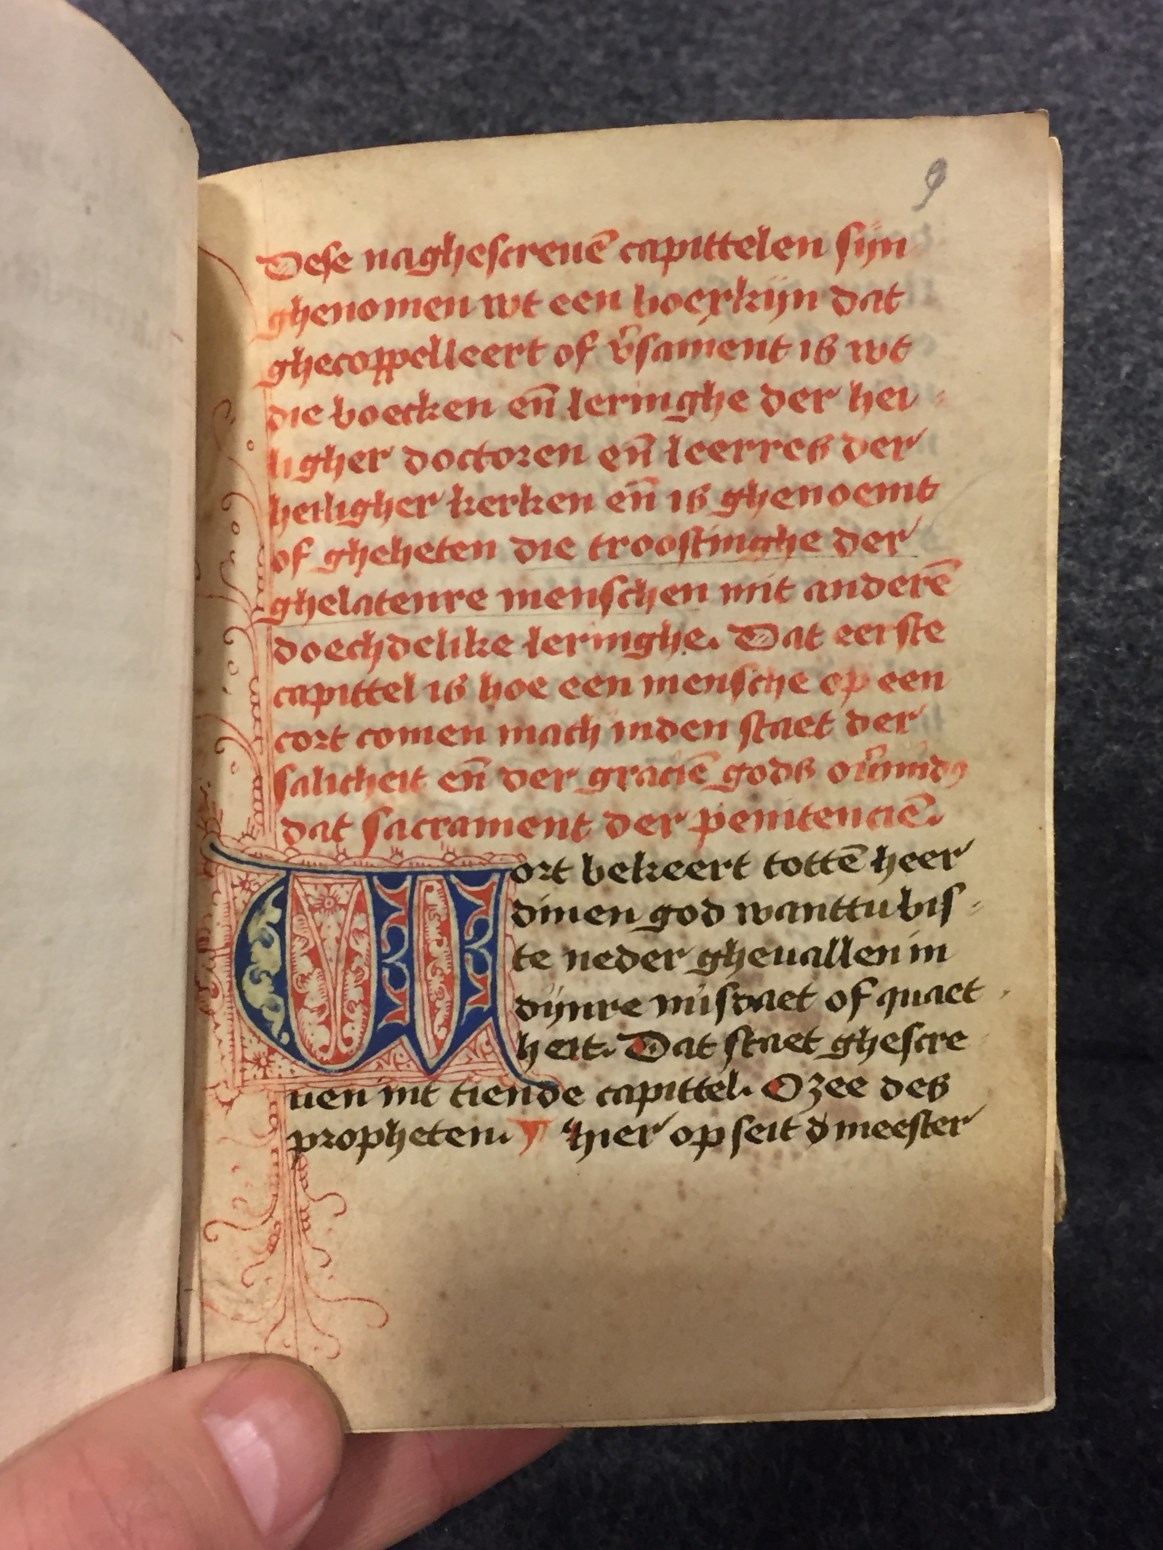 9
Dese naghescreuē capittelen sijn
ghenomen wt een boexkijn dat
ghecoppelleert of v̄sament is wt
die boecken eñ leringhe der hei
ligher doctoren eñ leerres der
heiligher kerken eñ is ghenoemt
of gheheten die troostinghe der
ghelatenre menschen mit anderē
doechdelike leringhe. Dat eerste
capittel is hoe een mensche op een
cort comen mach inden staet der
salicheit eñ der graciē gods
dat sacrament der penitenciē.
Wort bekeert tottē heer
dinen god wanttu bis
te neder gheuallen in
dijnre misdaet of quaet
heit. Dat staet ghescre
uen int tiende capittel. Ozee des
propheten. hier op seit d meester